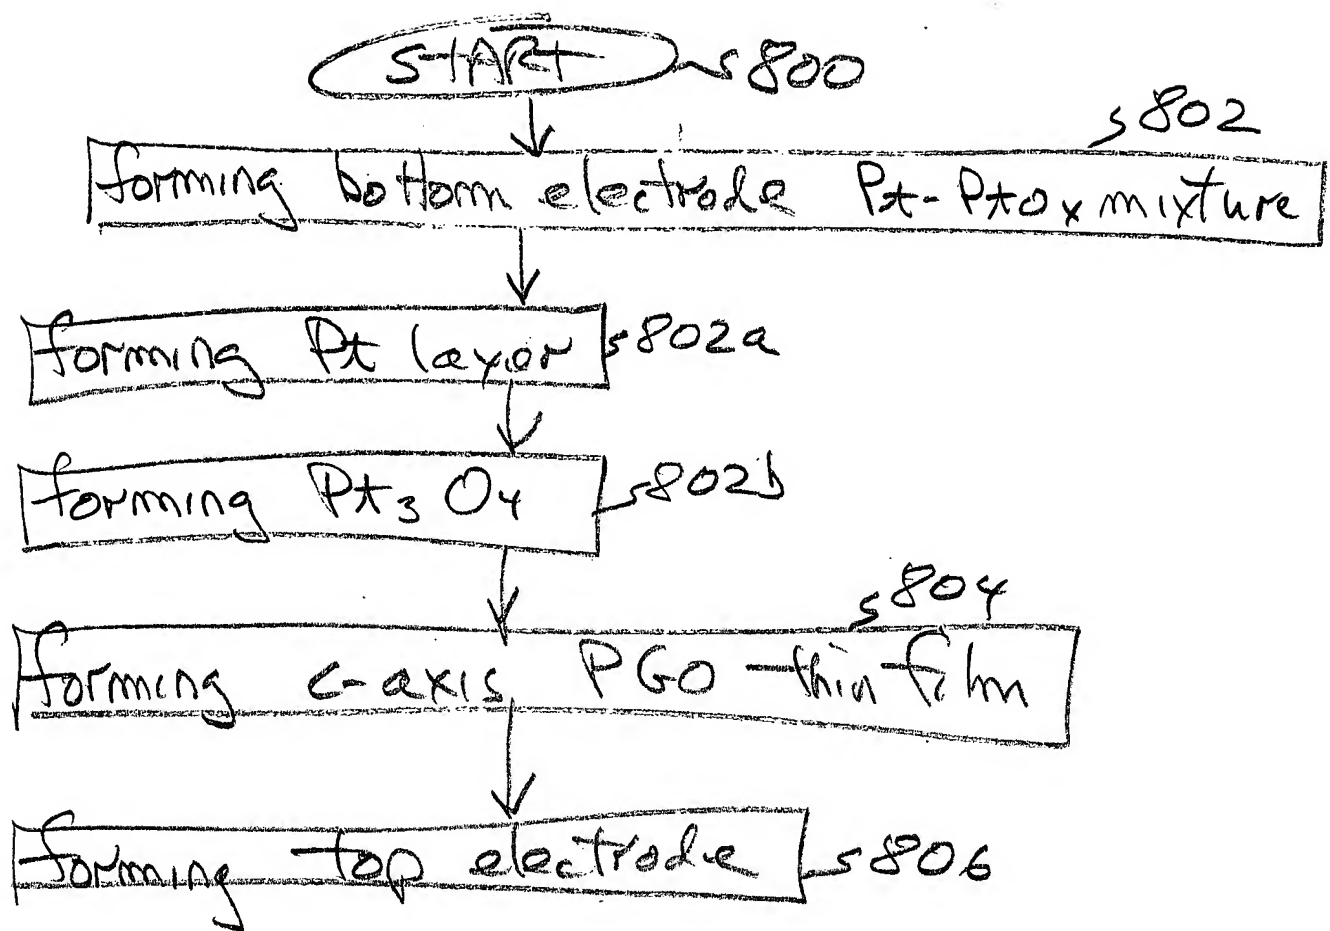 START 800
802
forming bottom electrode Pt-PtOx mixture
forming Pt layer 802a
forming Pt3O4 802b
804
forming c-axis PGO thin film
forming top electrode 806